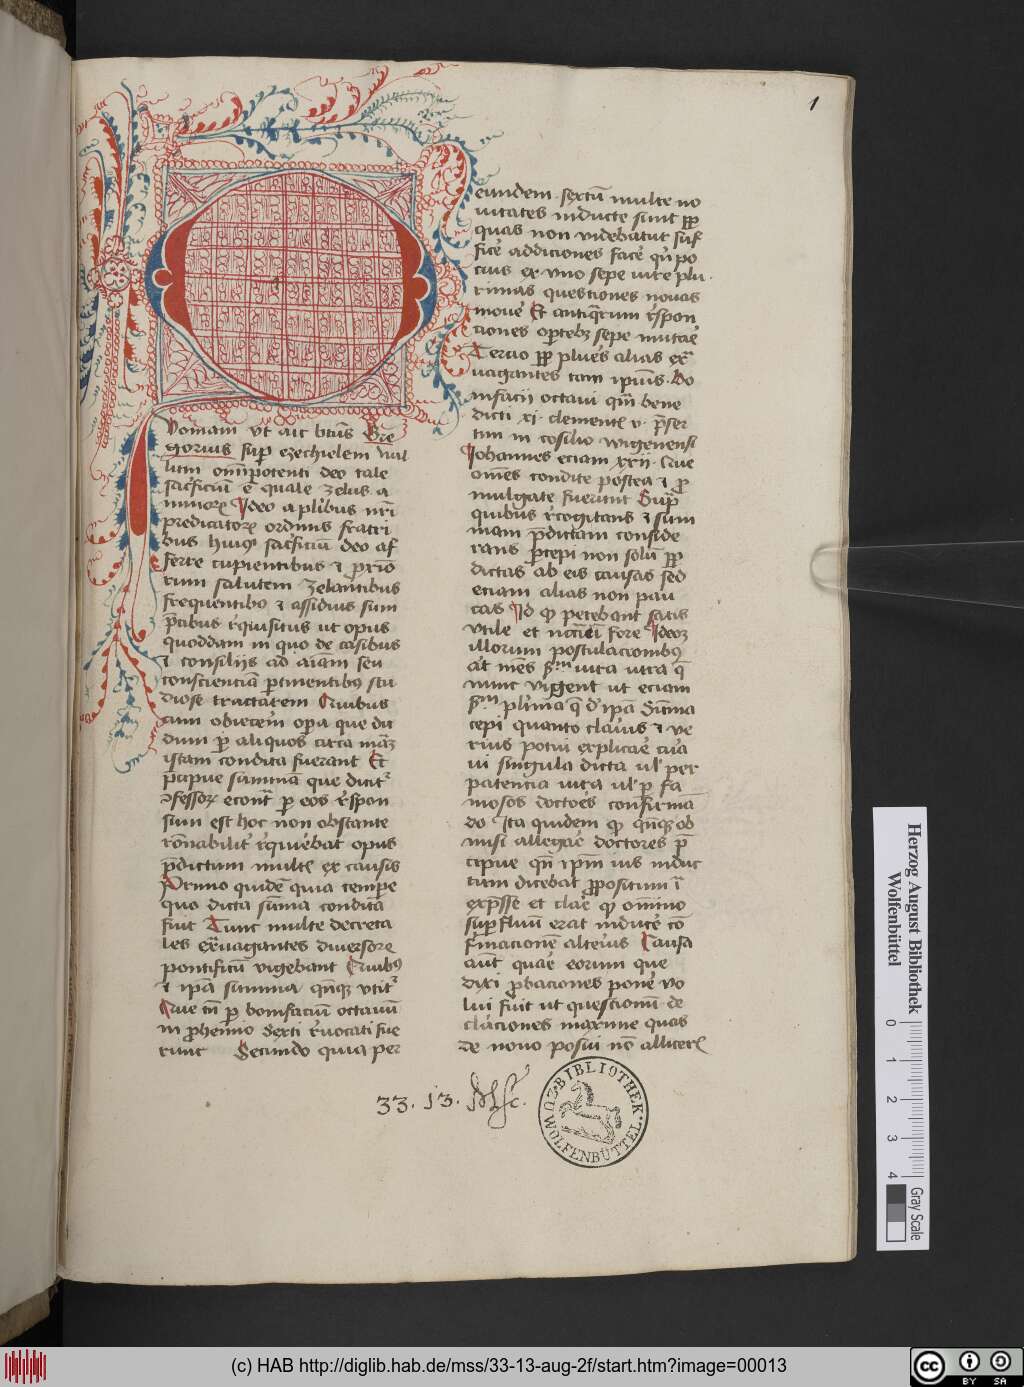 1
Qoniam ut ait btūs Gre
gorius sup ezechielem nul
lum omīpotenti deo tale
sacficiū ē quale zelus a
nimaꝝ Ideo a plibus nrī
predicatoꝝ ordinis fratri
bus huiꝰ sacficiū deo af
ferre cupientibus ⁊ ꝓxīo
rum salutem zelantibus
frequentibꝰ ⁊ assiduis sum
p̄cibus rꝗuisitus ut opus
quoddam in quo de casibus
⁊ consilijs ad aīam seu
conscienciā ꝑtinentibꝰ stu
diose tractarem Quibus
cum obiecem opa que du
dum ꝑ aliquos circa māꝫ
istam condita fuerant Et
p̄cipue summā que dicit᷑
ꝯfessoꝝ econt̄ ꝑ eos rn̄spon
sum est hoc non obstante
rōnabilit rꝗuiebat opus
p̄dictum mult᷑ ex causis
Primo quidē quia tempe
quo dicta sūma condita
fuit Tunc multe decreta
les ex̄uagantes diuersoꝝ
pontificū vigebant Quibꝰ
⁊ ipa summa qn̄qꝫ vtit᷑
Que tn̄ ꝑ bonifaciū octauū
in ꝓhemio Sexti r̄uocati fue
runt Secundo quia per
eundem sextū multe no
uitates inducte sunt ꝓp
quas non videbatur suf
fice addiciones face qn̄ po
cius ex vno sepe iure plu
rimas questiones nouas
moue Et antiq̄rum r̄spon
ciones oꝑtebꝫ sepe mutae
Tercio ꝓp plues alias ex̄
uagantes tam ipius Bo
nifacij octaui qm̄ bene
dicti xi clement᷑ v p̄ser
tim in cōsilio wigenensi
Johannes eciam xxij Que
omēs condite postea ⁊ ꝓ
mulgate fuerunt Sup
quibus r̄cogitans ⁊ sum
mam p̄dictam conside
rans ꝑcepi non solū ꝓp
dictas ab eis causas sed
eciam alias non pau
cas Id qꝫ petebant satis
vtile et nccīū fore Ideoꝫ
illorum postulacionibꝰ
at mēs
nunc vigent ut eciam
plīma q̄ d ipa sūma
cepi quanto clauis ⁊ ve
rius potui explicae cuā
ui singula dicta vl per
patencia iura vl ꝑ fa
mosos doctoēs confirmā
do Ita quidem qꝫ qn̄qꝫ ob
misi allegae doctores p̄
cipue qn̄ ipm ius induc
tum dicebat ꝓpositum ī
exp̄sse et clae qꝫ omīno
supfluū erat induce cō
firmacionē alteīus Causa
aūt quae eorum que
dixi ꝓbaciones pone vo
lui fuit ut questionū de
claciones maxime quas
de nouo posui nō allicer᷑
33. 13. Msc.
BIBLIOTHEK
ZU WOLFENBÜTTEL
Herzog August Bibliothek
Wolfenbüttel
0 1 2 3 4
Gray Scale
(c) HAB http://diglib.hab.de/mss/33-13-aug-2f/start.htm?image=00013
cc BY SA